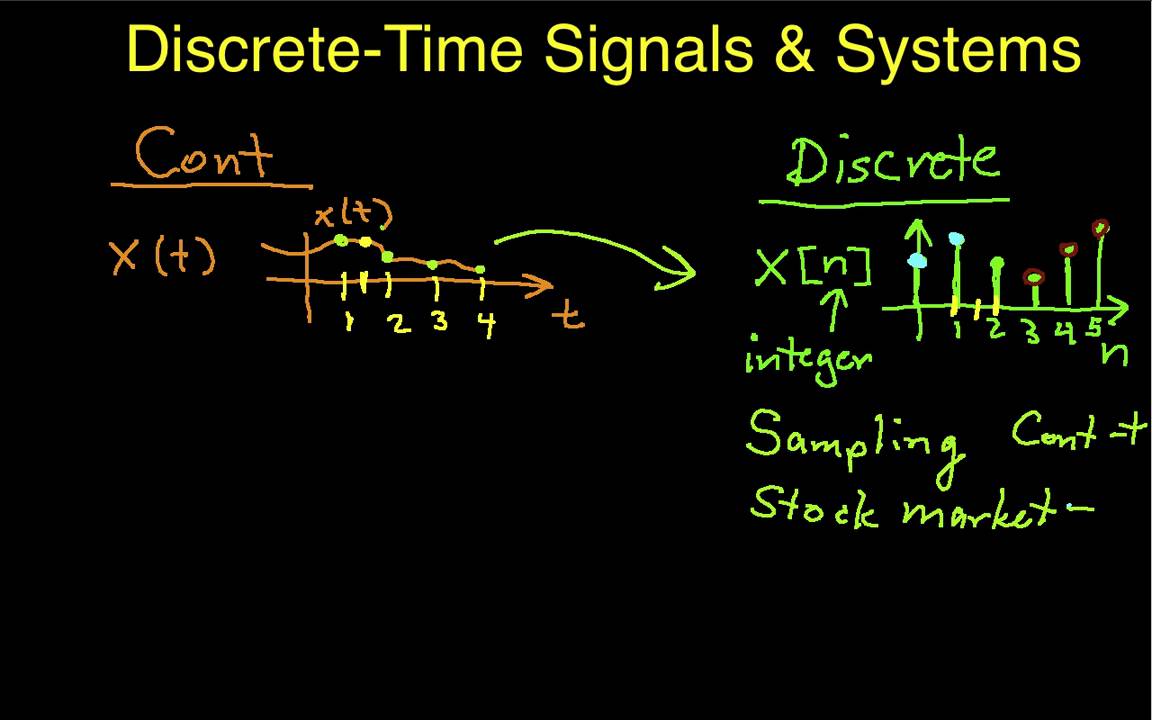 Discrete-Time Signals & Systems
Cont
x(t)
X (t)
1 2 3 4
t
Discrete
X [n]
1 2 3 4 5
n
integer
Sampling Cont-t
Stock market-